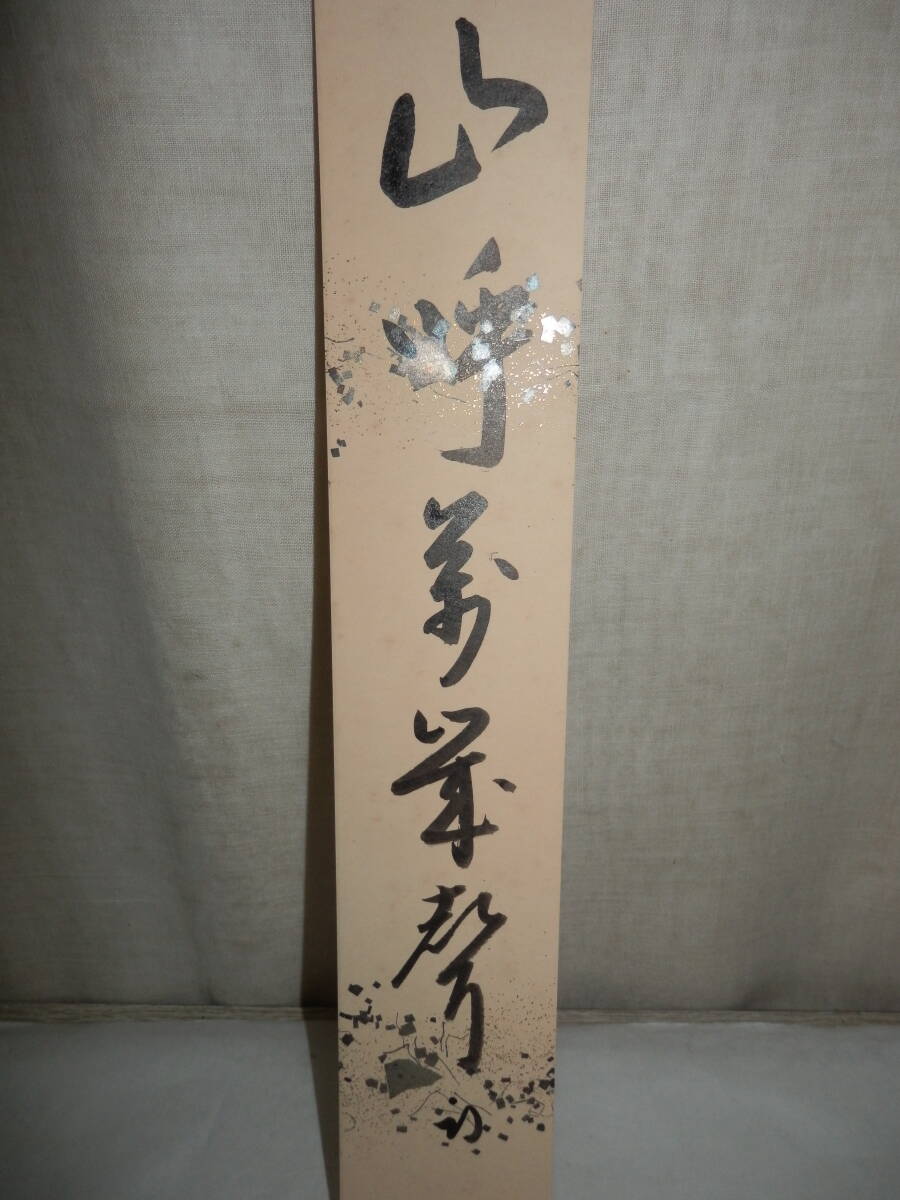 山呼萬歳聲